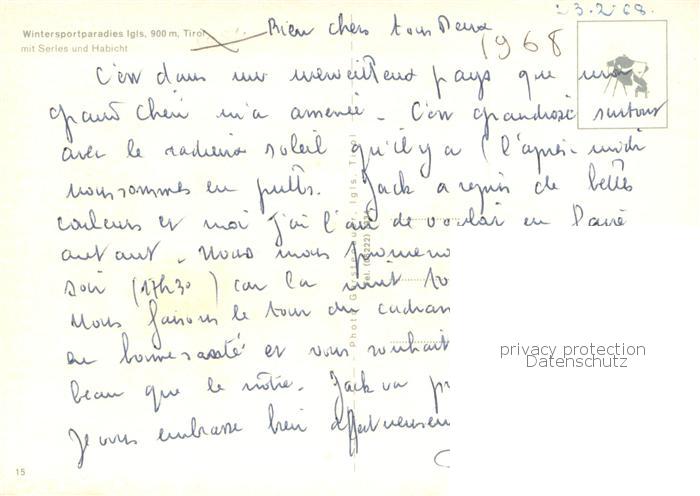 23.2.68.
Wintersportparadies Igls, 900 m, Tirol
mit Serles und Habicht
Bien chers tous Deux
1968
C'est dans un merveilleux pays que mon
grand Chéri m'a amenée. C'est grandiose surtout
avec le radieux soleil qu'il y a (l'après-midi
nous sommes en pulls. Jack a repris de belles
couleurs et moi j'ai l'air de vouloir en faire
autant. Nous nous promenons
soir (17h30) car la nuit to
Nous faisons le tour du cadran
en bonne santé et vous souhait
beau que le nôtre. Jack va pr
Je vous embrasse bien affectueusem
Photo Gerstenbauer, Igls, Tirol
Tel. (05222)
privacy protection
Datenschutz
15